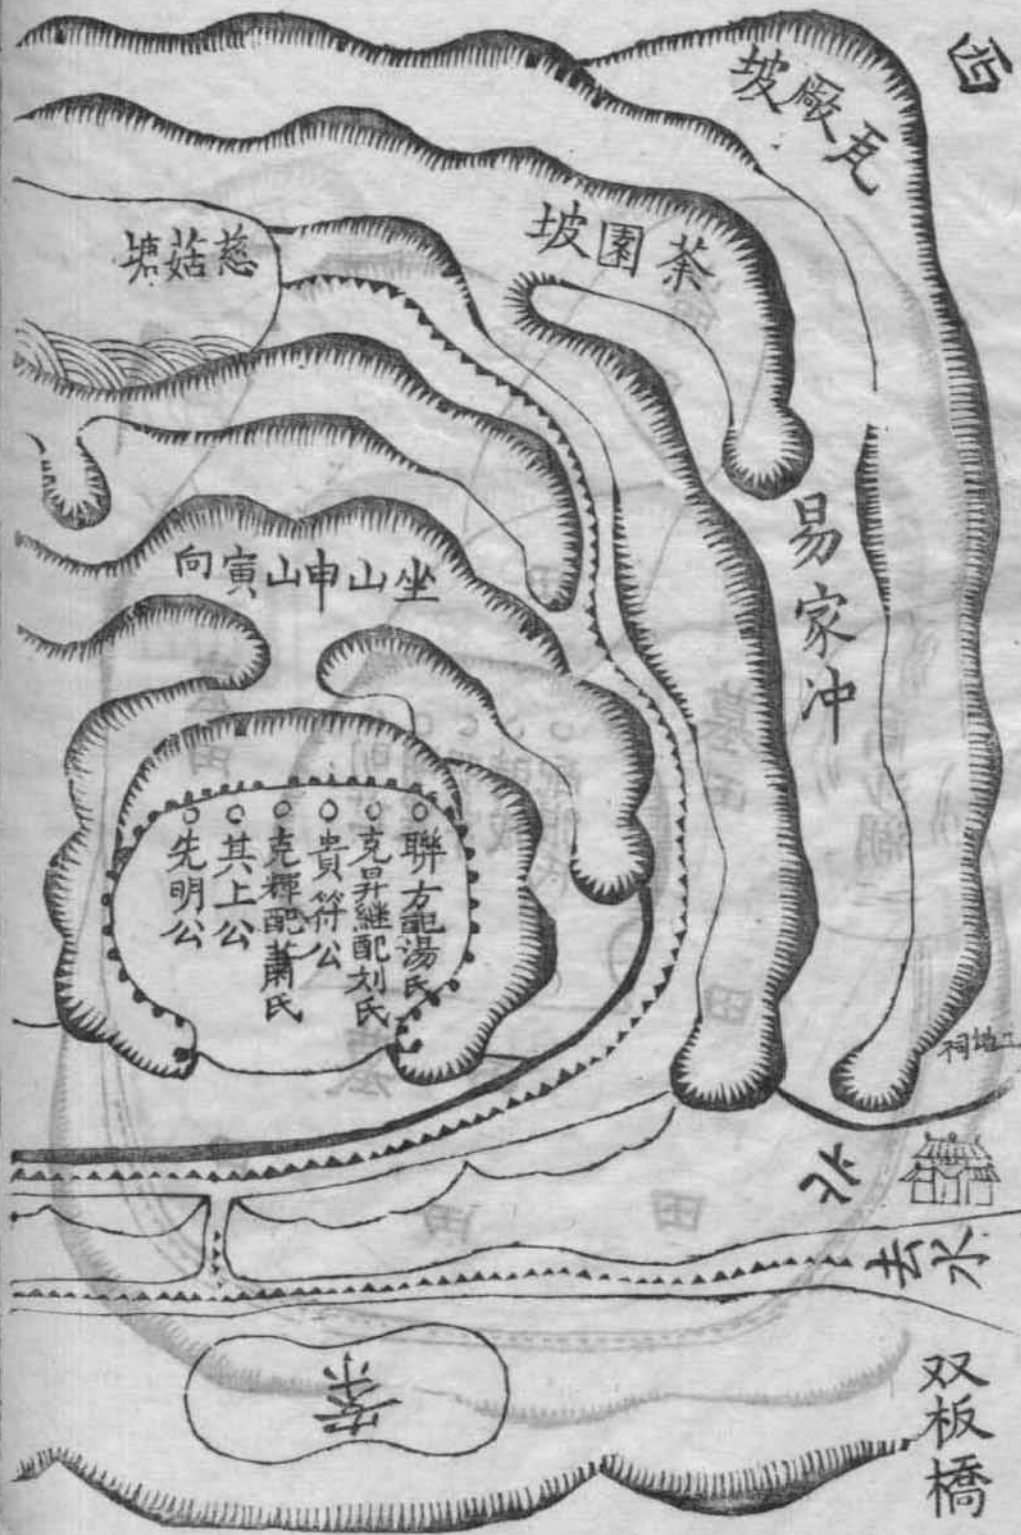 西
瓦廠坡
茶園坡
慈菇塘
易家冲
坐山申山寅向
聯方配湯氏
克昇継配刘氏
貴符公
克輝配蕭氏
其上公
先明公
北
水去
案
双板橋